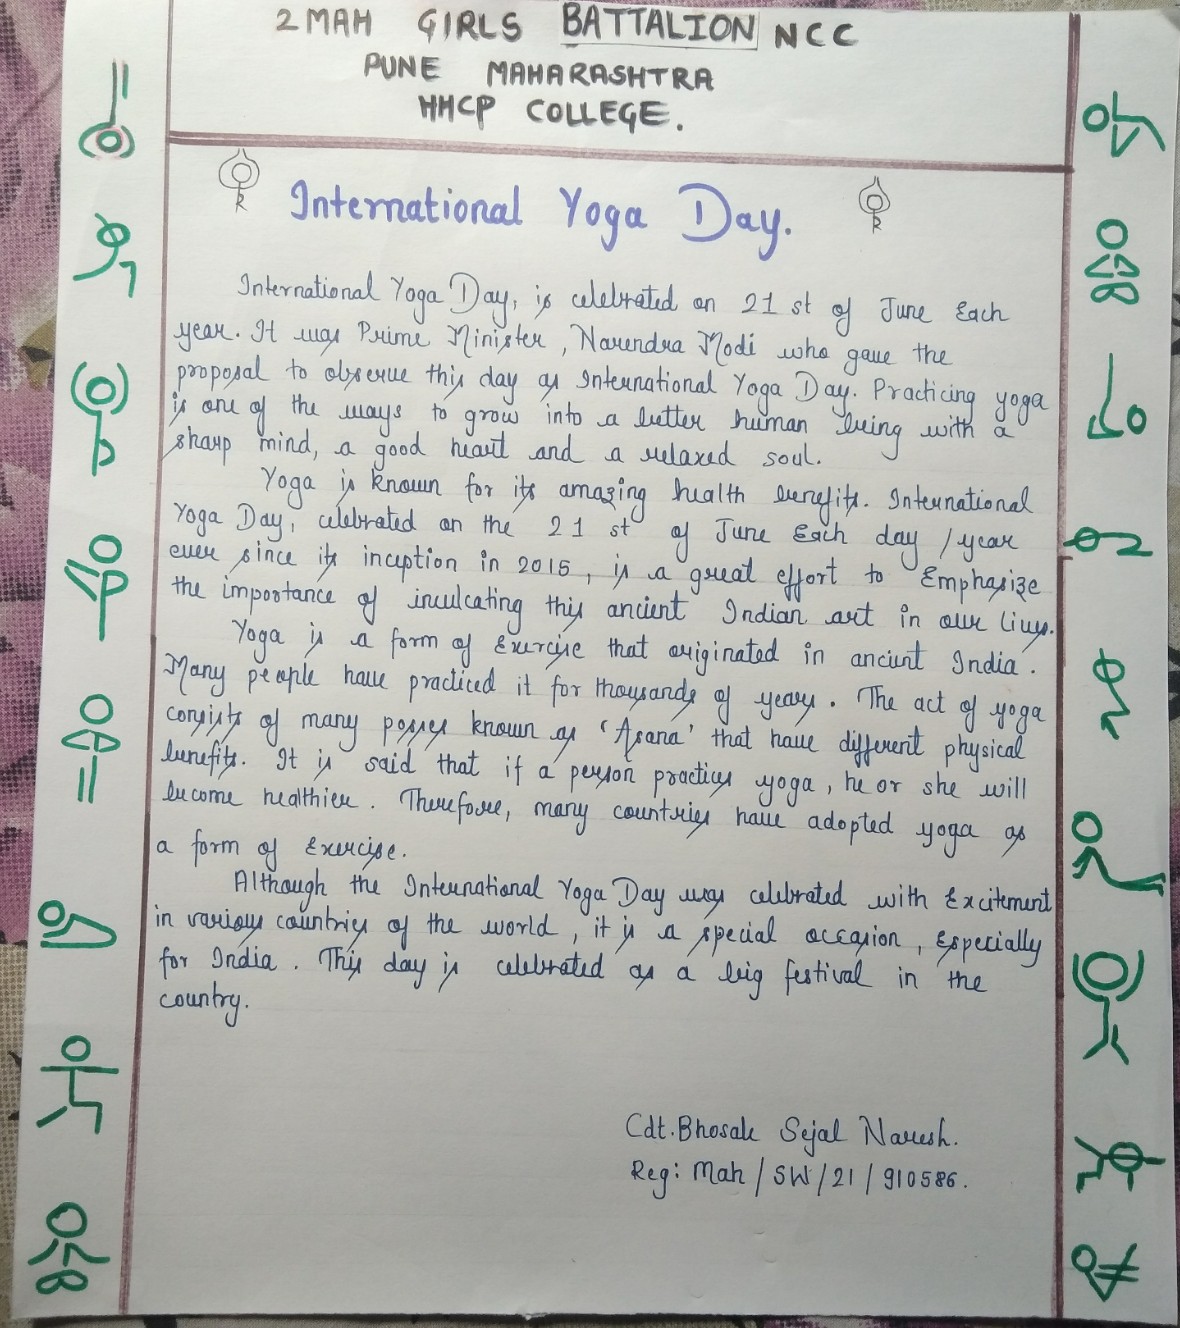 2 MAH GIRLS BATTALION NCC
PUNE MAHARASHTRA
HHCP COLLEGE.
International Yoga Day.
International Yoga Day, is celebrated on 21 st of June Each
year. It was Prime Minister, Narendra Modi who gave the
proposal to observe this day as International Yoga Day. Practicing yoga
is one of the ways to grow into a better human being with a
sharp mind, a good heart and a relaxed soul.
Yoga is known for its amazing health benefits. International
Yoga Day, celebrated on the 21 st of June Each day / year
ever since its inception in 2015, is a great effort to Emphasize
the importance of inculcating this ancient Indian art in our lives.
Yoga is a form of Exercise that originated in ancient India.
Many people have practiced it for thousands of years. The act of yoga
consists of many posses known as 'Asana' that have different physical
benefits. It is said that if a person practices yoga, he or she will
become healthier. Therefore, many countries have adopted yoga as
a form of Exercise.
Although the International Yoga Day was celebrated with Excitement
in various countries of the world, it is a special occasion, Especially
for India. This day is celebrated as a big festival in the
country.
Cdt. Bhosale Sejal Naresh.
Reg: Mah / SW / 21 / 910586.